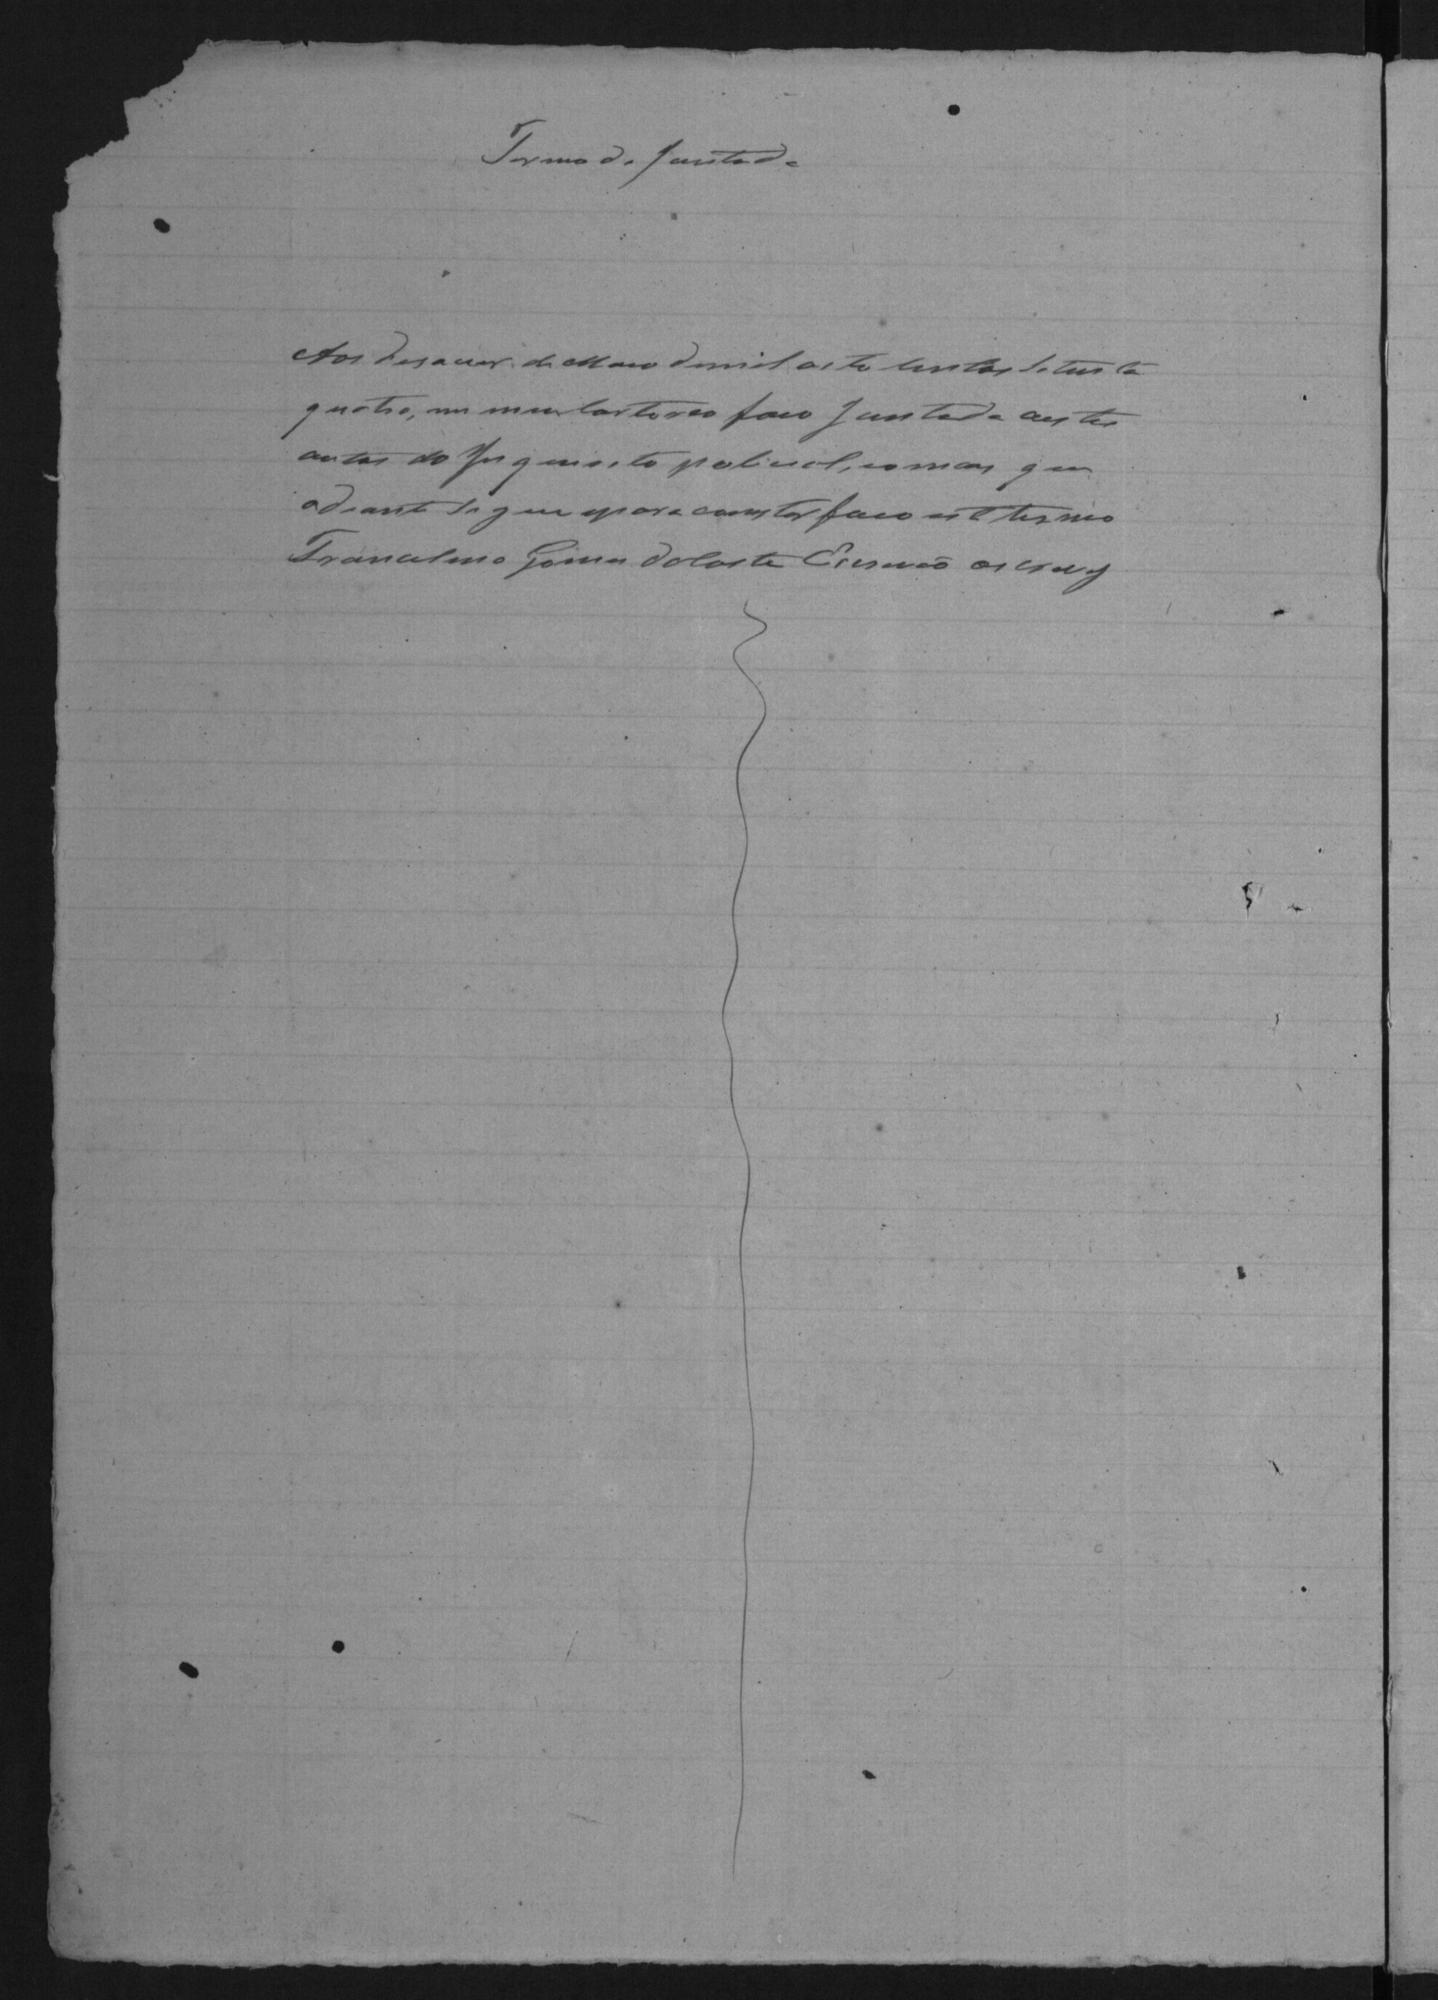 Termo de Juntada
Aos desanove de Maio de mil oito centos setenta
quatro, em meu Cartorio faço Juntada a estes
autos do Inquerito policial, como que
adiante segue e para constar faço este termo
Gomes da Costa Escrivão escrevy